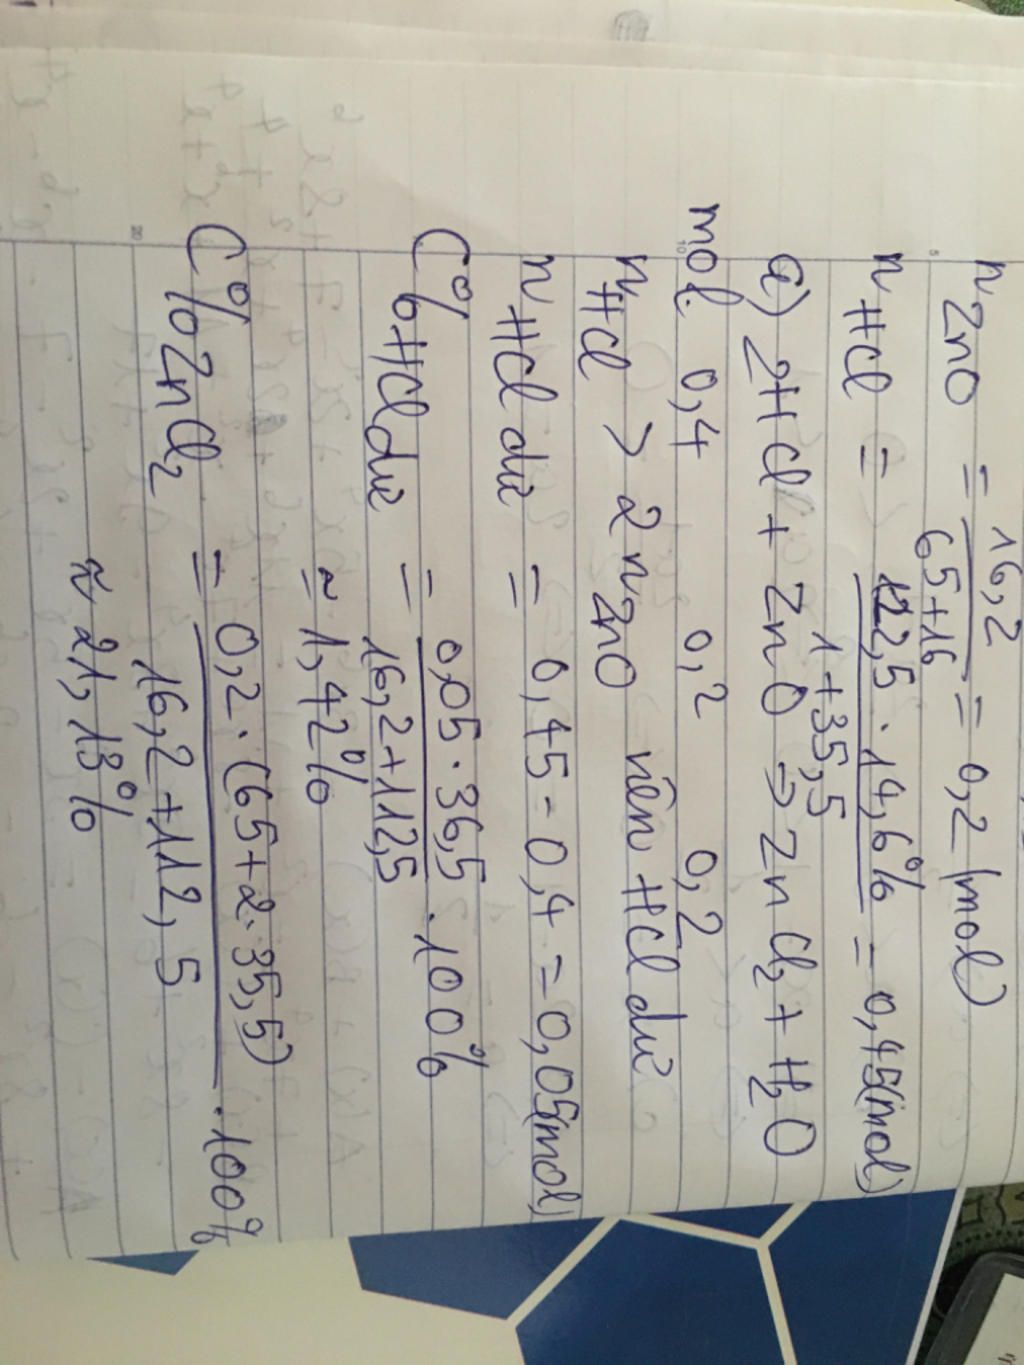 n ZnO = 16,2 / 65+16 = 0,2 (mol)
n HCl = 112,5 . 14,6% / 1+35,5 = 0,45 (mol)
a) 2HCl + ZnO → ZnCl2 + H2O
mol 0,4 0,2 0,2
n HCl > 2 n ZnO nên HCl dư
n HCl dư = 0,45 - 0,4 = 0,05 (mol)
C% HCl dư = 0,05 . 36,5 / 16,2+112,5 . 100%
≈ 1,42%
C% ZnCl2 = 0,2 . (65+2.35,5) / 16,2+112,5 . 100%
≈ 21,13%